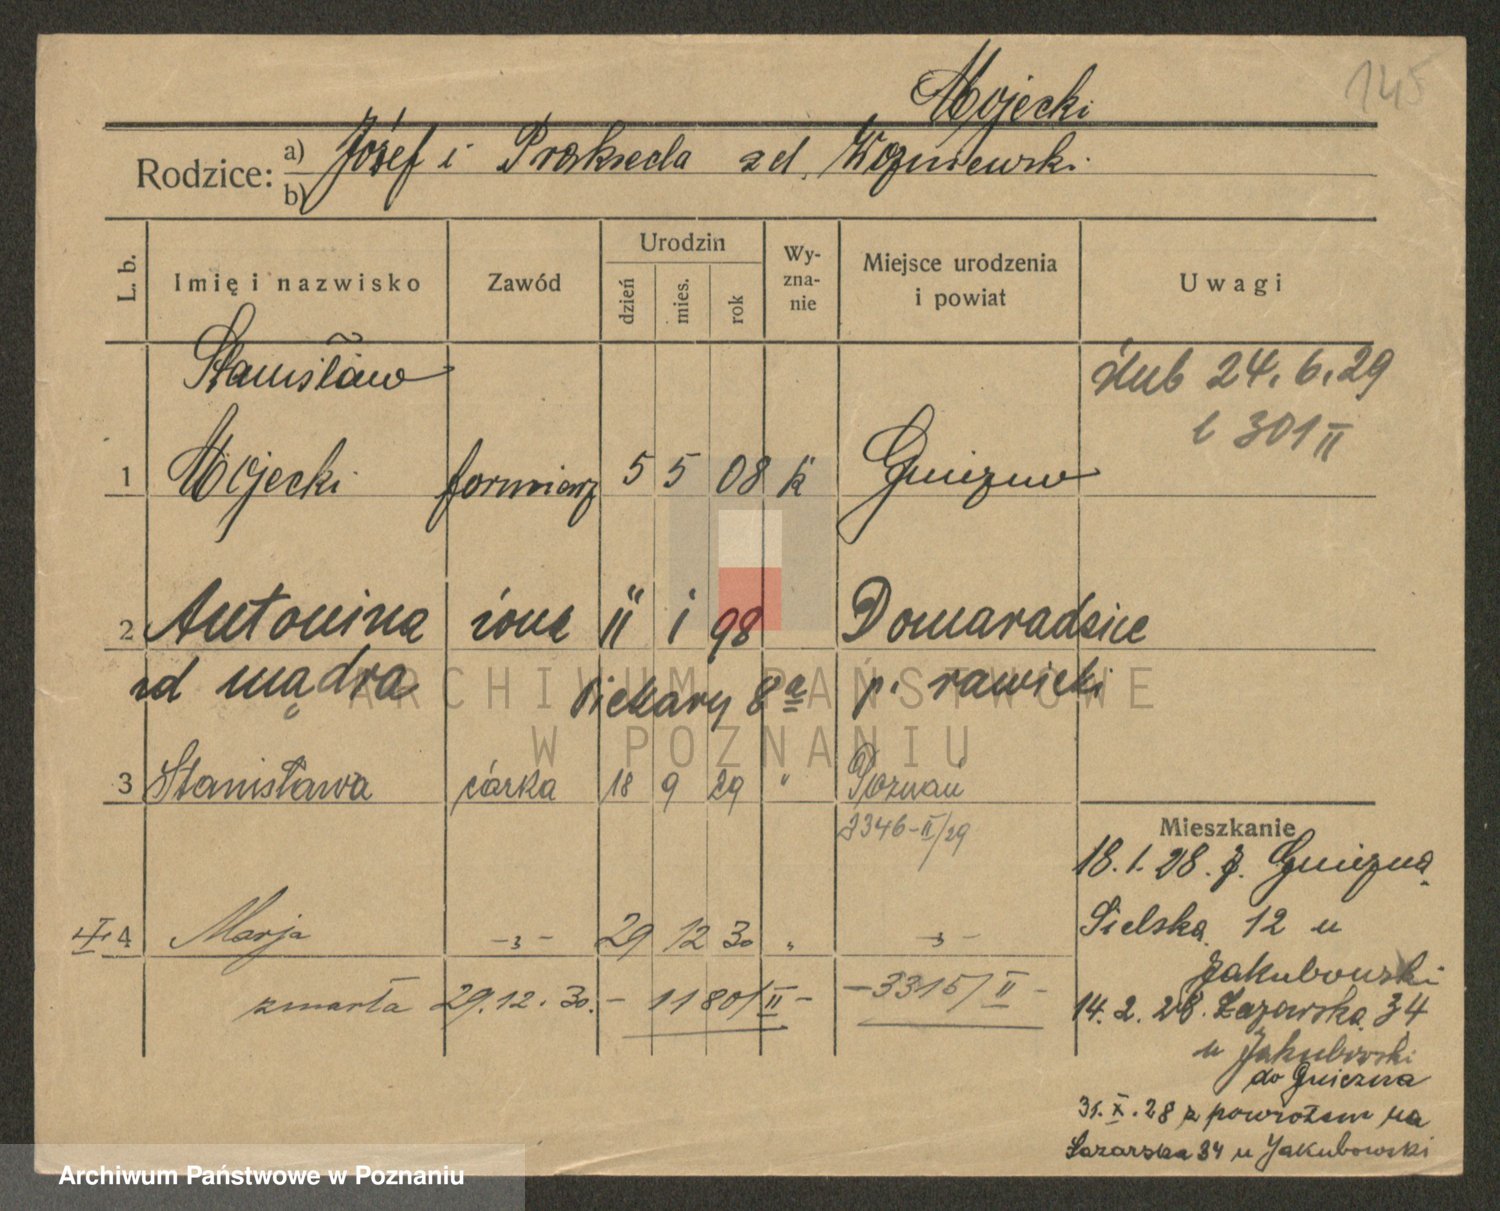 145
Mojecki
Rodzice: a) Józef i Prakseda zd. Wozniewski
b)
L. b. Imię i nazwisko Zawód Urodzin dzień mies. rok Wy-zna-nie Miejsce urodzenia i powiat Uwagi
Stanisław ślub 24.6.29
l 301 II
1 Mojecki formierz 5 5 08 k Gniezno
2 Antonina żona 11 1 98 " Domaradzice
zd mądra Piekary 8a p. rawicki
3 Stanisława córka 18 9 29 " Poznań
3346-II/29
Mieszkanie
18.1.28. z. Gniezna
Sielska 12 u
Jakubowski
4 Marja -„- 29 12 30 „ -„-
zmarła 29.12.30. - 1180/II - - 3315/II -
14.2.28. Łazarska 34
u Jakubowski
do Gniezna
31.X.28 z powrotem na
Łazarska 34 u Jakubowski
ARCHIWUM PAŃSTWOWE
W POZNANIU
Archiwum Państwowe w Poznaniu